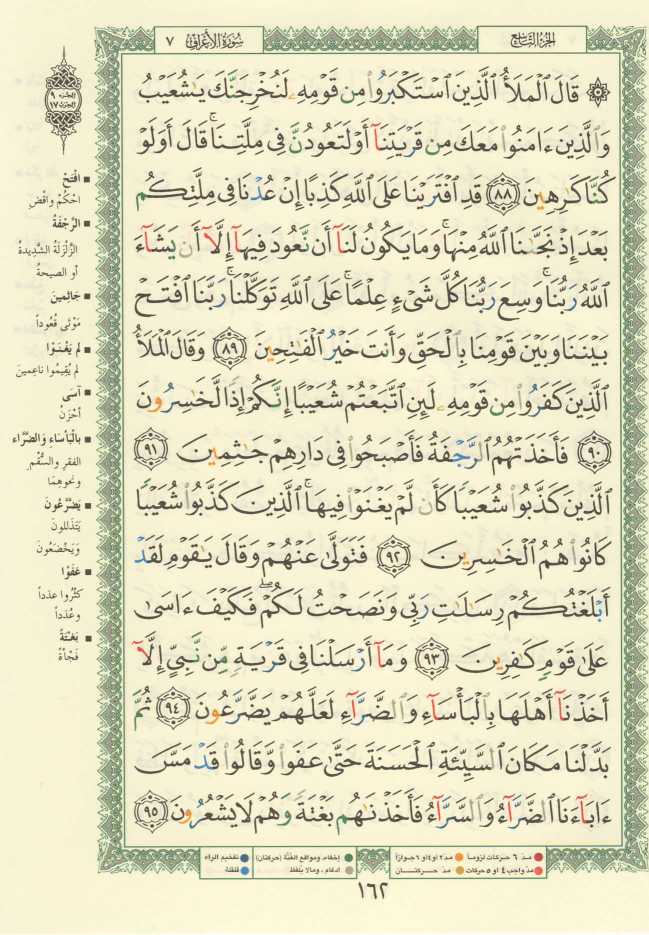 سُورَةُ الأَعْرَافِ ٧
الجُزْءُ التَّاسِعُ
۞ قَالَ ٱلْمَلَأُ ٱلَّذِينَ ٱسْتَكْبَرُوا۟ مِن قَوْمِهِۦ لَنُخْرِجَنَّكَ يَـٰشُعَيْبُ
وَٱلَّذِينَ ءَامَنُوا۟ مَعَكَ مِن قَرْيَتِنَآ أَوْ لَتَعُودُنَّ فِى مِلَّتِنَا ۚ قَالَ أَوَلَوْ
كُنَّا كَـٰرِهِينَ ﴿٨٨﴾ قَدِ ٱفْتَرَيْنَا عَلَى ٱللَّهِ كَذِبًا إِنْ عُدْنَا فِى مِلَّتِكُم
بَعْدَ إِذْ نَجَّىٰنَا ٱللَّهُ مِنْهَا ۚ وَمَا يَكُونُ لَنَآ أَن نَّعُودَ فِيهَآ إِلَّآ أَن يَشَآءَ
ٱللَّهُ رَبُّنَا ۚ وَسِعَ رَبُّنَا كُلَّ شَىْءٍ عِلْمًا ۚ عَلَى ٱللَّهِ تَوَكَّلْنَا ۚ رَبَّنَا ٱفْتَحْ
بَيْنَنَا وَبَيْنَ قَوْمِنَا بِٱلْحَقِّ وَأَنتَ خَيْرُ ٱلْفَـٰتِحِينَ ﴿٨٩﴾ وَقَالَ ٱلْمَلَأُ
ٱلَّذِينَ كَفَرُوا۟ مِن قَوْمِهِۦ لَئِنِ ٱتَّبَعْتُمْ شُعَيْبًا إِنَّكُمْ إِذًا لَّخَـٰسِرُونَ
﴿٩٠﴾ فَأَخَذَتْهُمُ ٱلرَّجْفَةُ فَأَصْبَحُوا۟ فِى دَارِهِمْ جَـٰثِمِينَ ﴿٩١﴾
ٱلَّذِينَ كَذَّبُوا۟ شُعَيْبًا كَأَن لَّمْ يَغْنَوْا۟ فِيهَا ۚ ٱلَّذِينَ كَذَّبُوا۟ شُعَيْبًا
كَانُوا۟ هُمُ ٱلْخَـٰسِرِينَ ﴿٩٢﴾ فَتَوَلَّىٰ عَنْهُمْ وَقَالَ يَـٰقَوْمِ لَقَدْ
أَبْلَغْتُكُمْ رِسَـٰلَـٰتِ رَبِّى وَنَصَحْتُ لَكُمْ ۖ فَكَيْفَ ءَاسَىٰ
عَلَىٰ قَوْمٍ كَـٰفِرِينَ ﴿٩٣﴾ وَمَآ أَرْسَلْنَا فِى قَرْيَةٍ مِّن نَّبِىٍّ إِلَّآ
أَخَذْنَآ أَهْلَهَا بِٱلْبَأْسَآءِ وَٱلضَّرَّآءِ لَعَلَّهُمْ يَضَّرَّعُونَ ﴿٩٤﴾ ثُمَّ
بَدَّلْنَا مَكَانَ ٱلسَّيِّئَةِ ٱلْحَسَنَةَ حَتَّىٰ عَفَوا۟ وَّقَالُوا۟ قَدْ مَسَّ
ءَابَآءَنَا ٱلضَّرَّآءُ وَٱلسَّرَّآءُ فَأَخَذْنَـٰهُم بَغْتَةً وَهُمْ لَا يَشْعُرُونَ ﴿٩٥﴾
الجزء ٩
الحزب ١٧
■ افْتَحْ
احْكُمْ واقْضِ
■ الرَّجْفَةُ
الزَّلْزَلَةُ الشَّدِيدةُ
أو الصيحةُ
■ جَاثِمِينَ
مَوْتَى قُعُوداً
■ لَمْ يَغْنَوْا
لَمْ يُقِيمُوا ناعِمينَ
■ آسَى
أحْزَنُ
■ بِالْبَأْسَاءِ وَالضَّرَّاء
الفقرِ والسُّقْمِ
ونَحْوِهِمَا
■ يَضَّرَّعُونَ
يَتَذَلَّلُونَ
وَيَخْضَعُونَ
■ عَفَوْا
كَثُرُوا عدَداً
وعُدَداً
■ بَغْتَةً
فَجْأَةً
مدّ ٦ حركات لزوماً مدّ ٢ أو ٤ أو ٦ جوازاً
مدّ واجب ٤ أو ٥ حركات مدّ حركتان
إخفاء، ومواقع الغُنَّة (حركتان) تفخيم الراء
ادغام، وما لا يُلفظ قلقلة
١٦٢